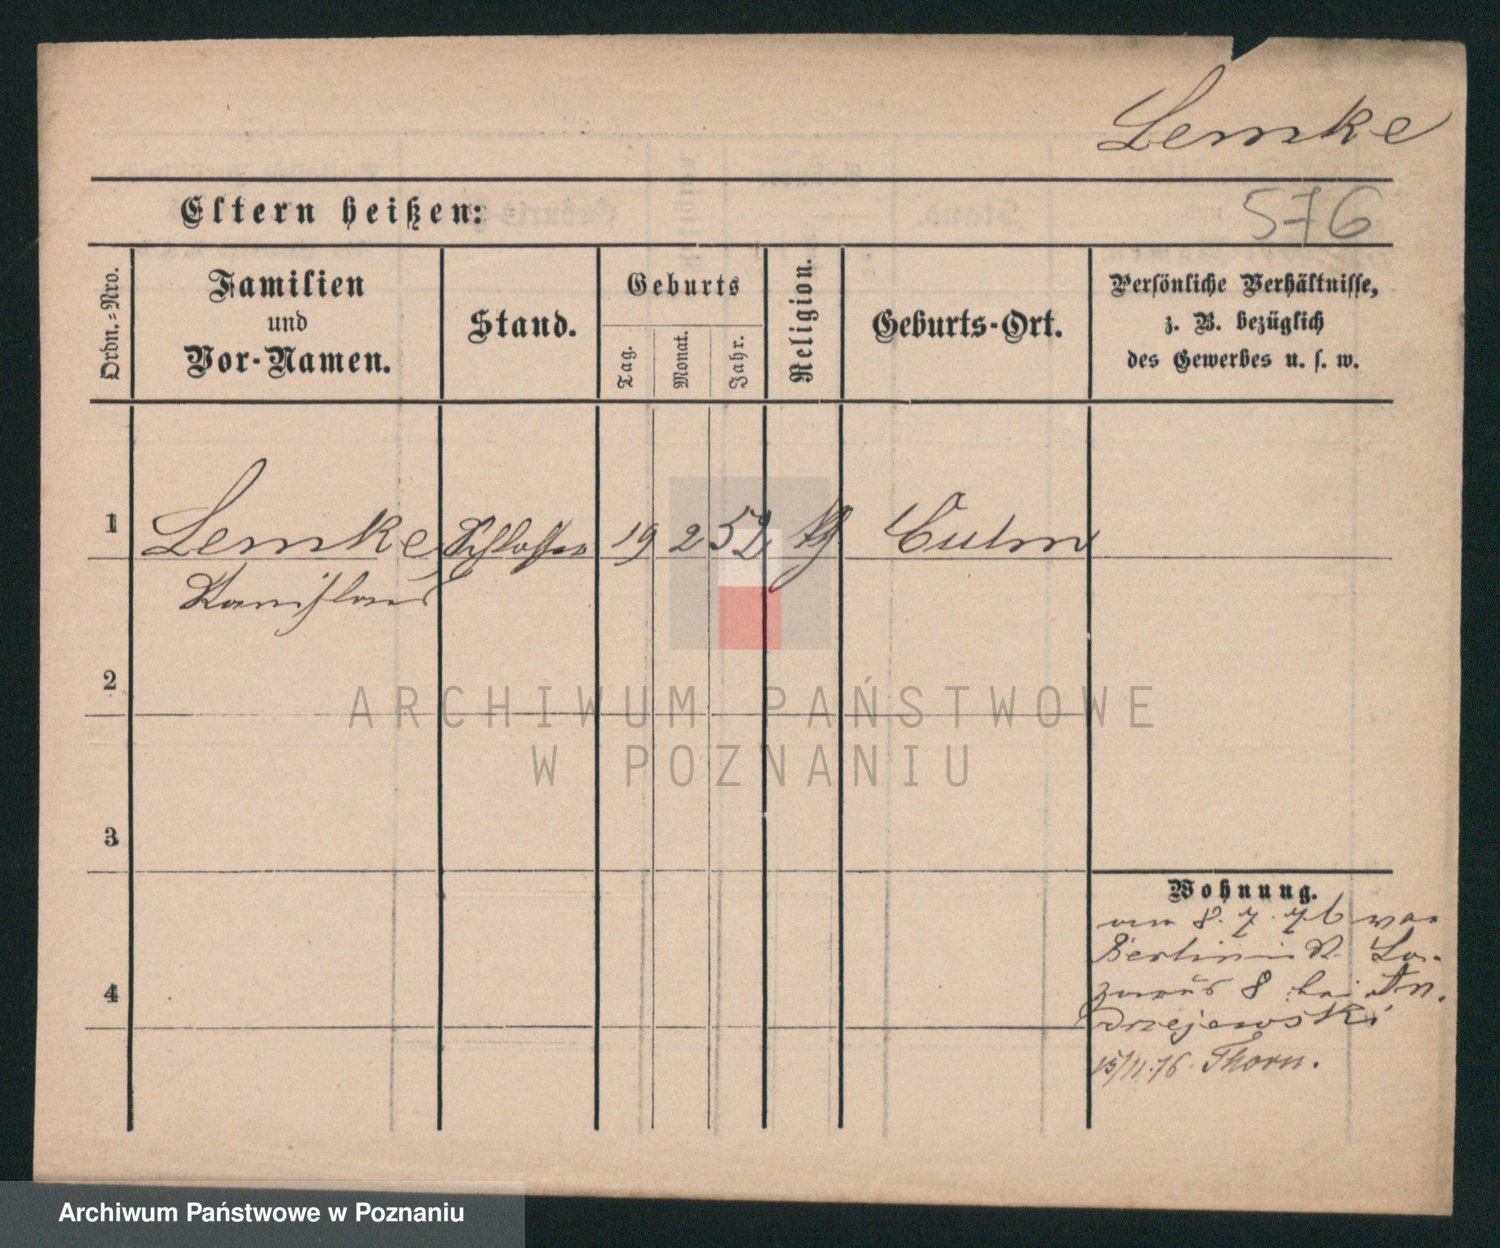 Lemke
576
Eltern heißen:
Ordn.-Nro.
Familien
und
Vor-Namen.
Stand.
Geburts
Tag.
Monat.
Jahr.
Religion.
Geburts-Ort.
Persönliche Verhältnisse,
z. B. bezüglich
des Gewerbes u. s. w.
1
Lemke Schlosser 19 2 52 Culm
Stanislaus
2
ARCHIWUM PAŃSTWOWE
W POZNANIU
3
Wohnung.
8. 7. 76 von
Berlin
8 bei An-
drzejewski
4
15/11.76. Thorn.
Archiwum Państwowe w Poznaniu